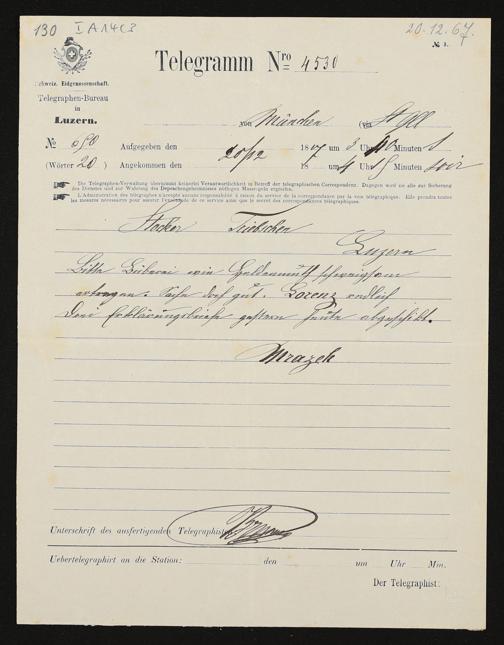 130 I A 14 c 3
20.12.67.
№ 1.
Telegramm Nro 4530
Schweiz. Eidgenossenschaft.
Telegraphen-Bureau
in
Luzern.
von München (via St Gll
№ Aufgegeben den 20/12 1867 um 3 Uhr Minuten
(Wörter 20) Angekommen den 18 um 4 Uhr 15 Minuten soir
Die Telegraphen-Verwaltung übernimmt keinerlei Verantwortlichkeit in Betreff der telegraphischen Correspondenz. Dagegen wird sie alle zur Sicherung
des Dienstes und zur Wahrung des Depeschengeheimnisses nöthigen Massregeln ergreifen.
L'Administration des télégraphes n'accepte aucune responsabilité à raison du service de la correspondance par la voie télégraphique. Elle prendra toutes
les mesures nécessaires pour assurer l'exactitude de ce service ainsi que le secret des correspondances télégraphiques.
Stocker Triebschen
Luzern
Bitte Büberei wie Heldenmuth schweigsam
ertragen. Sache doch gut. Lorenz endlich
drei Erklärungsbriefe gestern heute abgeschikt.
Mrazek
Unterschrift des ausfertigenden Telegraphist
Uebertelegraphirt an die Station: den um Uhr Min.
Der Telegraphist: